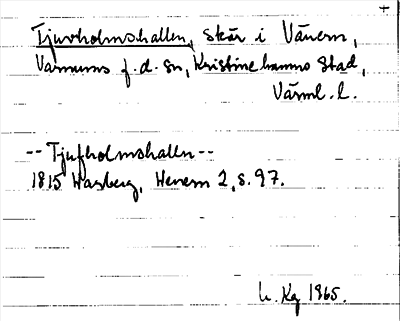 +
Tjuvholmshallen, skär i Vänern,
Varnums f.d. sn, Kristinehamns stad,
Värml. l.
-- Tjufholmshallen --
1815 Hasberg, Henern 2, s. 97.
U. Kg 1965.